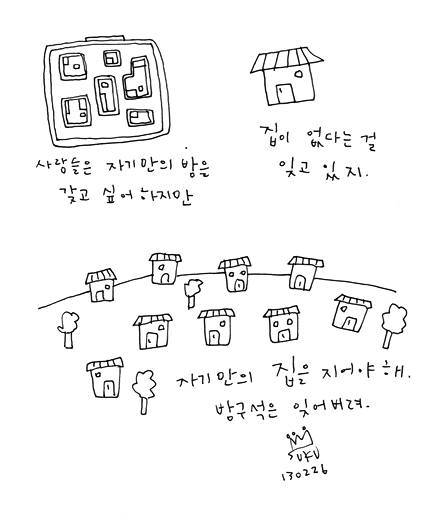 사람들은 자기만의 방을
갖고 싶어 하지만
집이 없다는 걸
잊고 있지.
자기만의 집을 지어야 해.
방구석은 잊어버려.
SUKU
130226